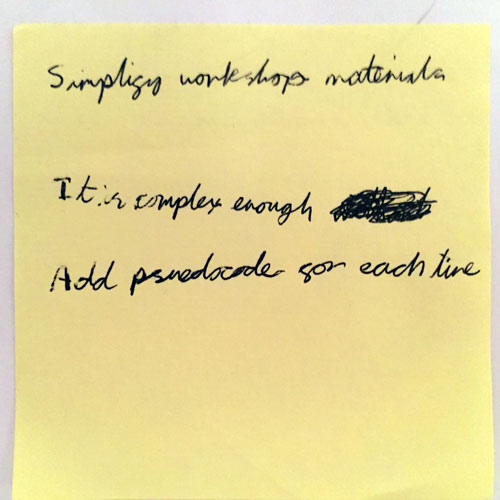 Simplify workshops materials
It is complex enough
Add psuedocode for each line